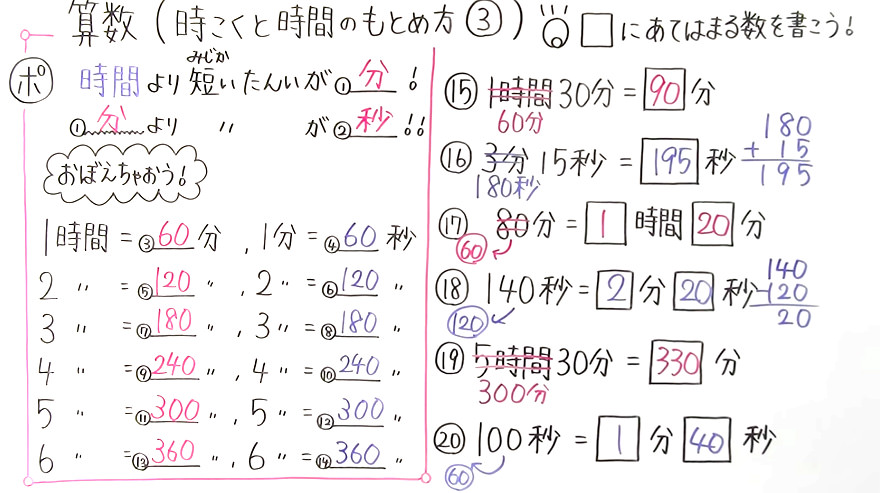 算数（時こくと時間のもとめ方③）
□にあてはまる数を書こう!
ポ 時間より短いたんいが①分!
みじか
①分より 〃 が②秒!!
おぼえちゃおう!
1時間=③60分, 1分=④60秒
2 〃 =⑤120 〃, 2 〃 =⑥120 〃
3 〃 =⑦180 〃, 3 〃 =⑧180 〃
4 〃 =⑨240 〃, 4 〃 =⑩240 〃
5 〃 =⑪300 〃, 5 〃 =⑫300 〃
6 〃 =⑬360 〃, 6 〃 =⑭360 〃
⑮ 1時間30分=90分
60分
⑯ 3分15秒=195秒
180秒
180
+ 15
195
⑰ 80分=1時間20分
60
⑱ 140秒=2分20秒
120
140
-120
20
⑲ 5時間30分=330分
300分
⑳ 100秒=1分40秒
60